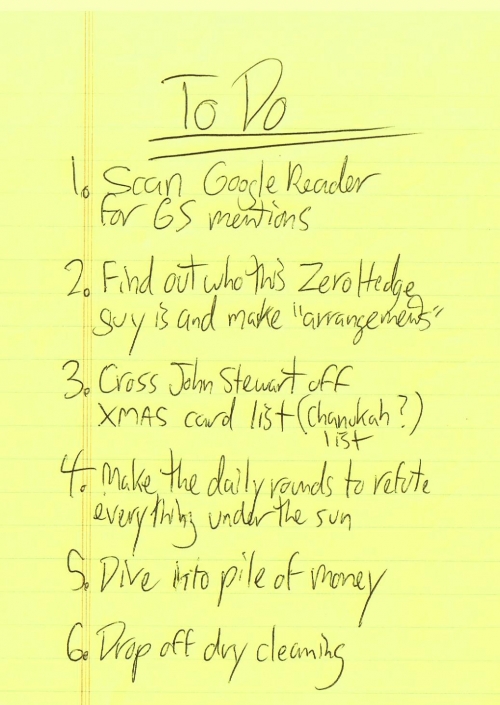 To Do
1. Scan Google Reader
for GS mentions
2. Find out who this ZeroHedge
guy is and make "arrangements"
3. Cross John Stewart off
XMAS card list (Chanukah?)
list
4. Make the daily rounds to refute
everything under the sun
5. Dive into pile of money
6. Drop off dry cleaning